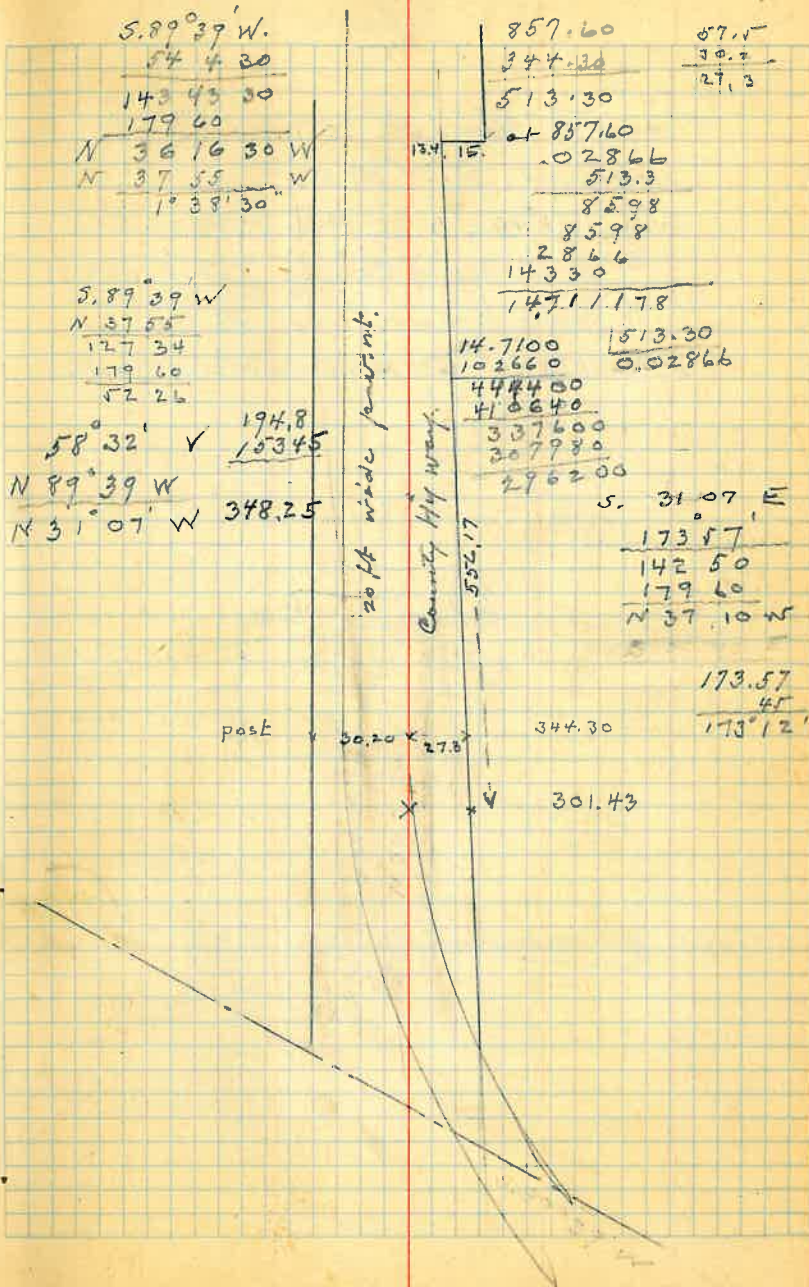 S. 89° 39' W.
54 4 30
143 43 30
179 60
N 36 16 30 W
N 37 55 W
1° 38' 30"
S. 89° 39' W
N 37 55
127 34
179 60
52 26
58° 32' V
N 89° 39 W
N 31° 07' W
194.8
153 45
348.25
20 ft wide pavm't.
County H'y way.
556.17
13.4
15.
857.60
344.30
513.30
at 857.60
.02866
513.3
8598
8598
2866
14330
14.711178
57.5
30.2
27.3
14.7100
102660
444400
410640
337600
307980
296200
513.30
0.02866
S. 31 07 E
173° 57'
142 50
179 60
N 37 10 W
173.57
45
173° 12'
post
30.20
27.3
344.30
301.43